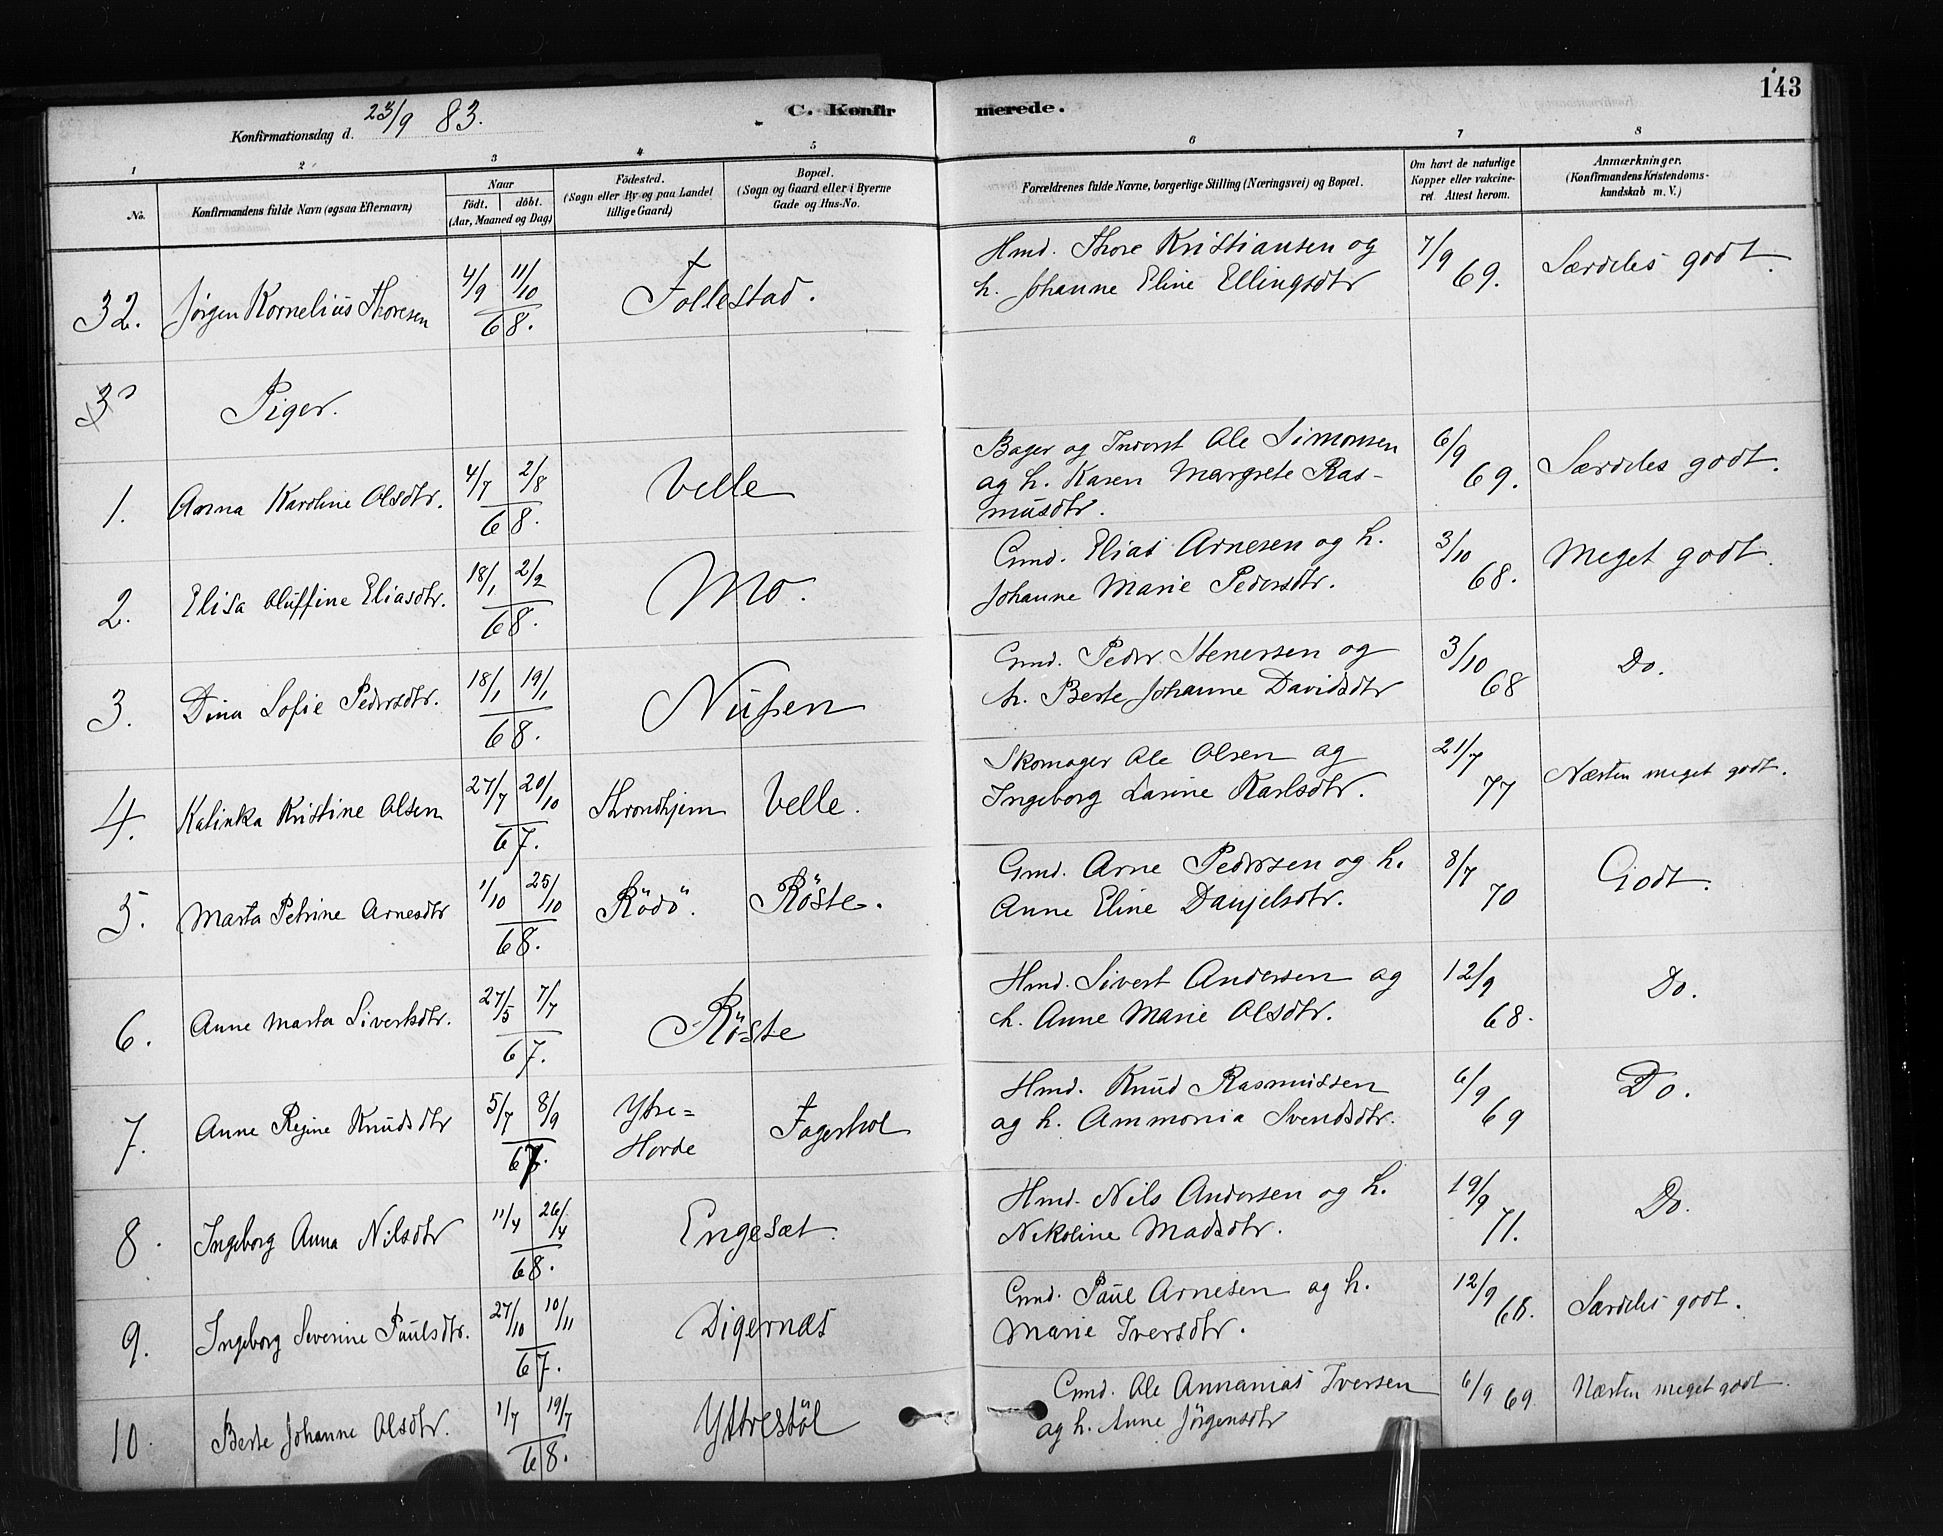 143
Konfirmationsdag d. 23/9 83.
C. Konfirmerede.
1 2 3 4 5 6 7 8
No.
Konfirmandens fulde Navn (ogsaa Efternavn)
Naar
födt. döbt.
(Aar, Maaned og Dag)
Födested.
(Sogn eller By og paa Landet
tillige Gaard)
Bopæl.
(Sogn og Gaard eller i Byerne
Gade og Hus-No.
Forældrenes fulde Navne, borgerlige Stilling (Næringsvei) og Bopæl.
Om havt de naturlige
Kopper eller vakcine-
ret Attest herom.
Anmærkninger.
(Konfirmandens Kristendoms-
kundskab m. V.)
32. Jørgen Kornelius Thoresen 4/9 11/10 68. Follestad. Hmd. Thore Kristiansen og
h. Johanne Eline Ellingsdtr 7/9 69. Særdeles godt.
Piger.
1. Anna Karoline Olsdtr. 4/7 2/8 68. Velle Bager og Inderst Ole Simonsen
og h. Karen Margrete Ras-
musdtr. 6/9 69. Særdeles godt.
2. Elisa Oluffine Eliasdtr. 18/1 2/2 68. Mo. Gmd. Elias Arnesen og h.
Johanne Marie Pedersdtr. 3/10 68. Meget godt.
3. Dina Sofie Pedersdtr. 18/1 19/1 68. Nupen Gmd. Peder Stenersen og
h. Berte Johanne Davidsdtr 3/10 68 Do.
4. Kalinka Kristine Olsen 27/7 20/10 67. Throndhjem Velle. Skomager Ole Olsen og
Ingeborg Larine Karlsdtr. 21/7 77 Næsten meget godt.
5. Marta Petrine Arnesdtr 1/10 25/10 68. Rödö. Röste. Gmd. Arne Pedersen og h.
Anne Eline Danjelsdtr. 8/7 70 Godt.
6. Anne Marta Sivertsdtr. 27/5 7/7 67. Röste Hmd. Sivert Andersen og
h. Anne Marie Olsdtr. 12/9 68. Do.
7. Anne Regine Knudsdtr 5/7 8/9 67. Ytre=
Horde Fagerhol Hmd. Knud Rasmussen
og h. Ammonia Svendsdtr. 6/9 69 Do.
8. Ingeborg Anna Nilsdtr 11/4 26/4 68. Engeset. Hmd. Nils Andersen og h.
Nikoline Madsdtr. 19/9 71. Do.
9. Ingeborg Severine Paulsdtr. 27/10 10/11 67. Digernæs Gmd. Paul Arnesen og h.
Marie Iversdtr. 12/9 68. Særdeles godt.
10. Berte Johanne Olsdtr. 1/7 19/7 68. Yttrestöl Gmd. Ole Annanias Iversen
og h. Anne Jörgensdtr 6/9 69 Næsten meget godt.